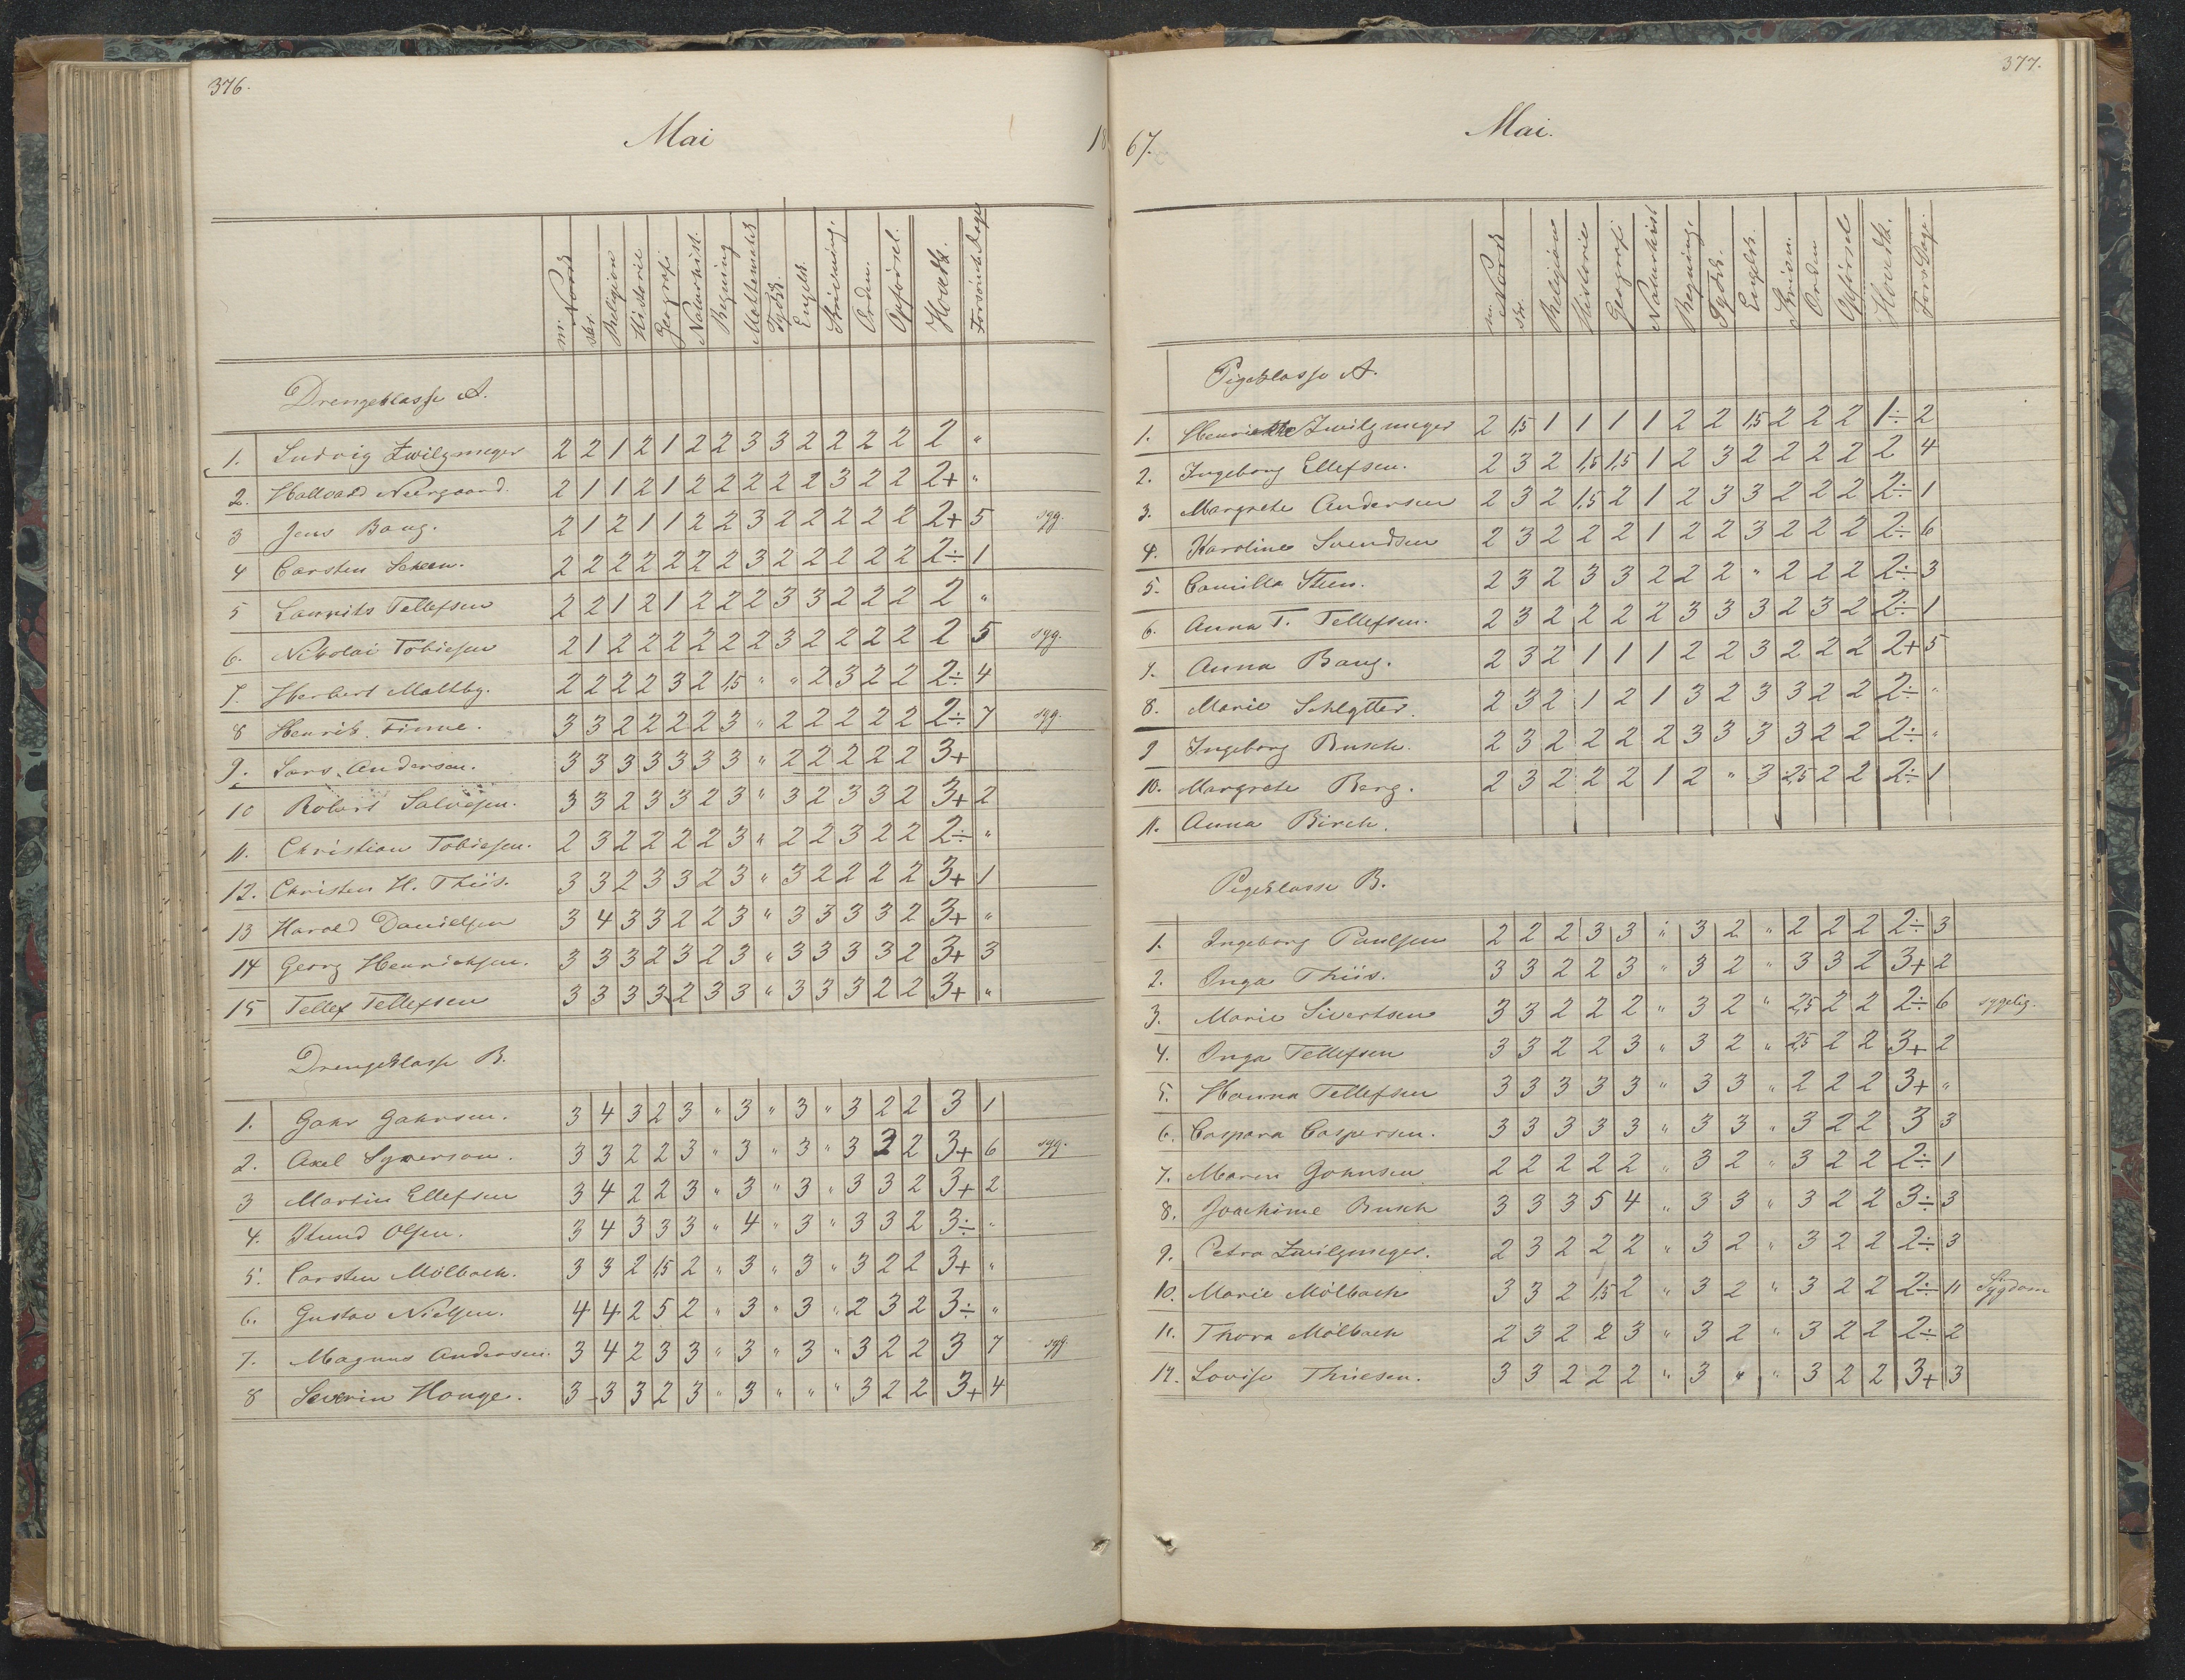 376.
Mai 18
m. Norsk skr. Religion Historie Geografi Naturhist. Regning Mathematik Tydsk. Engelsk. Skrivning. Orden. Opførsel. Hovedk. Forsømte Dage
Drengeklasse A.
1. Ludvig Zwilgmeyer 2 2 1 2 1 2 2 3 3 2 2 2 2 2 "
2. Hallvard Neergaard. 2 1 1 2 1 2 2 2 2 2 3 2 2 2+ "
3 Jens Bang. 2 1 2 1 1 2 2 3 2 2 2 2 2 2+ 5 syg.
4 Carsten Scheen. 2 2 2 2 2 2 2 3 2 2 2 2 2 2÷ 1
5 Laurits Tellefsen 2 2 1 2 1 2 2 2 3 3 2 2 2 2 "
6. Nikolai Tobiesen 2 1 2 2 2 2 2 2 3 2 2 2 2 2 5 syg.
7. Herbert Maltby. 2 2 2 2 3 2 1,5 " " 2 3 2 2 2÷ 4
8 Henrik Finne. 3 3 2 2 2 2 3 " 2 2 2 2 2 2÷ 7 syg.
9. Lars Andersen. 3 3 3 3 3 3 3 " 2 2 2 2 2 3+
10 Robert Salvesen. 3 3 2 3 3 2 3 " 3 2 3 3 2 3+ 2
11. Christian Tobiesen. 2 3 2 2 2 2 3 " 2 2 3 2 2 2÷ "
12. Christen H. Thiis. 3 3 2 3 3 2 3 " 3 2 2 2 2 3+ 1
13 Harald Danielsen 3 4 3 3 2 2 3 " 3 3 3 3 2 3+ "
14 Georg Henrichsen. 3 3 3 2 3 2 3 " 3 3 3 3 2 3+ 3
15 Tellef Tellefsen 3 3 3 3 2 3 3 " 3 3 3 2 2 3+ "
Drengeklasse B.
1. Gahr Gahrsen. 3 4 3 2 3 " 3 " 3 " 3 2 2 3 1
2. Axel Syverson. 3 3 2 2 3 " 3 " 3 " 3 2 2 3+ 6 syg.
3 Martin Ellefsen 3 4 2 2 3 " 3 " 3 " 3 3 2 3+ 2
4. Knud Olsen. 3 4 3 3 3 " 4 " 3 " 3 3 2 3÷ "
5. Carsten Mölbach. 3 3 2 1,5 2 " 3 " 3 " 3 2 2 3+ "
6. Gustav Nielsen. 4 4 2 5 2 " 3 " 3 " 2 3 2 3÷ "
7. Magnus Andersen. 3 4 2 3 3 " 3 " 3 " 3 2 2 3 7 syg.
8 Severin Houge. 3 3 3 2 3 " 3 " " " 3 2 2 3+ 4
377.
67. Mai.
m. Norsk skr. Religion Historie Geografi Naturhist Regning. Tydsk. Engelsk. Skrivn. Orden Opførsel Hovedk. Fors. Dage
Pigeklasse A.
1. Henriette Zwilgmeyer 2 1,5 1 1 1 1 2 2 1,5 2 2 2 1÷ 2
2. Ingeborg Ellefsen. 2 3 2 1,5 1,5 1 2 3 2 2 2 2 2 4
3. Margrete Andersen 2 3 2 1,5 2 1 2 3 3 2 2 2 2÷ 1
4. Karoline Svendsen 2 3 2 2 2 1 2 2 3 2 2 2 2÷ 6
5. Camilla Steen. 2 3 2 3 3 2 2 2 " 2 2 2 2÷ 3
6. Anna T. Tellefsen. 2 3 2 2 2 2 3 3 3 2 3 2 2÷ 1
7. Anna Bang. 2 3 2 1 1 1 2 2 3 2 2 2 2+ 5
8. Marie Schlytter. 2 3 2 1 2 1 3 2 3 3 2 2 2÷ "
9 Ingeborg Busch. 2 3 2 2 2 2 3 3 3 3 2 2 2÷ "
10. Margrete Berg. 2 3 2 2 2 1 2 " 3 2,5 2 2 2÷ 1
11. Anna Birch.
Pigeklasse B.
1. Ingeborg Paulsen 2 2 2 3 3 " 3 2 " 2 2 2 2÷ 3
2. Inga Thiis. 3 3 2 2 3 " 3 2 " 3 3 2 3+ 2
3. Marie Sivertsen 3 3 2 2 2 " 3 2 " 2,5 2 2 2÷ 6 sygelig.
4. Inga Tellefsen 3 3 2 2 3 " 3 2 " 2,5 2 2 3+ 2
5. Hanna Tellefsen 3 3 3 3 3 " 3 3 " 2 2 2 3+ "
6. Caspara Caspersen. 3 3 3 3 3 " 3 3 " 3 2 2 3 3
7. Maren Johnsen 2 2 2 2 2 " 3 2 " 3 2 2 2÷ 1
8. Joachime Busch 3 3 3 5 4 " 3 3 " 3 2 2 3÷ 3
9. Petra Zwilgmeyer. 2 3 2 2 2 " 3 2 " 3 2 2 2÷ 3
10. Marie Mölbach 3 3 2 1,5 2 " 3 2 " 3 2 2 2÷ 11 Sygdom
11. Thora Mölbach 2 3 2 2 3 " 3 2 " 3 2 2 2÷ 2
12. Lovise Thiesen. 3 3 2 2 2 " 3 " " 3 2 2 3+ 3